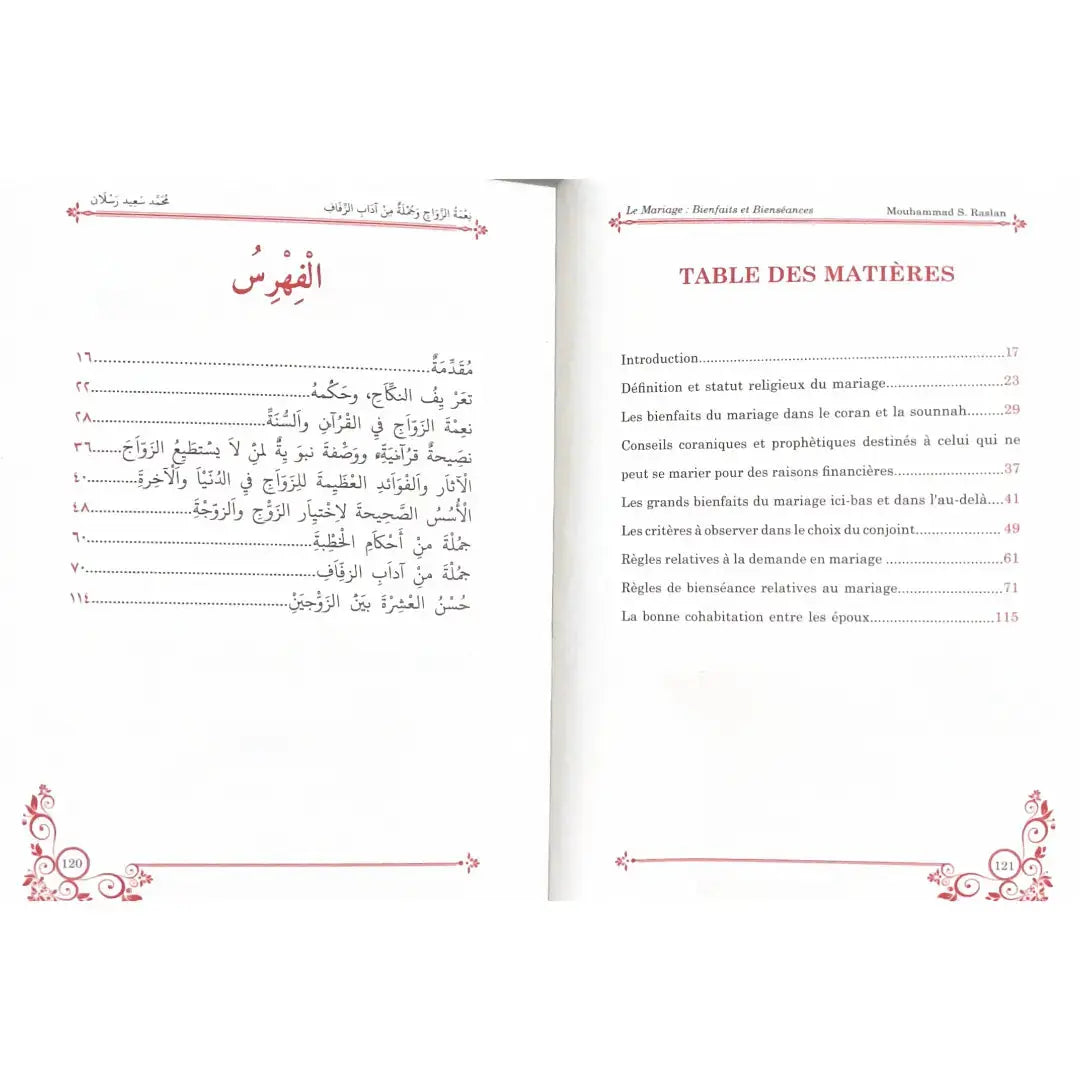 نِعْمَةُ الزَّوَاجِ وَجُمْلَةٌ مِنْ آدَابِ الزِّفَافِ
مُحَمَّد سَعِيد رَسْلَان
الْفِهْرِسُ
مُقَدِّمَةٌ..........١٦
تعَرْ يِفُ النكَّاَحِ، وحَكُمْهُ..........٢٢
نعِمْةَ الزَوّاَجِ فيِ القْرُآنِ واَلسُّنةَِّ..........٢٨
نصَيِحةٌَ قرُآنيِةَّ، ووَصَْفةَ نبوَ يِةٌَّ لمِنْ لاَ يسَْتطَيِعُ الزَوّاَجَ......٣٦
الْآثاَر واَلفْوَاَئدِ العْظَيِمةَ للِزوَّاَجِ فيِ الدُنّيْاَ واَلْآخرِةَِ..........٤٠
الْأُسُسُ الصَّحيِحةَ لاِخْتيِاَر الزوَّجِْ واَلزوّجْةَِ..........٤٨
جمُلْةَ منِْ أَحكْاَمِ الْخطِْبةَِ..........٦٠
جمُلْةَ منِْ آداَبِ الزفِّاَفِ..........٧٠
حُسْنُ العْشِرْةَ بيَنَْ الزوَّجْيَنِْ..........١١٤
120
Le Mariage : Bienfaits et Bienséances Mouhammad S. Raslan
TABLE DES MATIÈRES
Introduction..........17
Définition et statut religieux du mariage..........23
Les bienfaits du mariage dans le coran et la sounnah.........29
Conseils coraniques et prophètiques destinés à celui qui ne
peut se marier pour des raisons financières..........37
Les grands bienfaits du mariage ici-bas et dans l'au-delà....41
Les critères à observer dans le choix du conjoint..........49
Règles relatives à la demande en mariage ..........61
Règles de bienséance relatives au mariage..........71
La bonne cohabitation entre les époux..........115
121